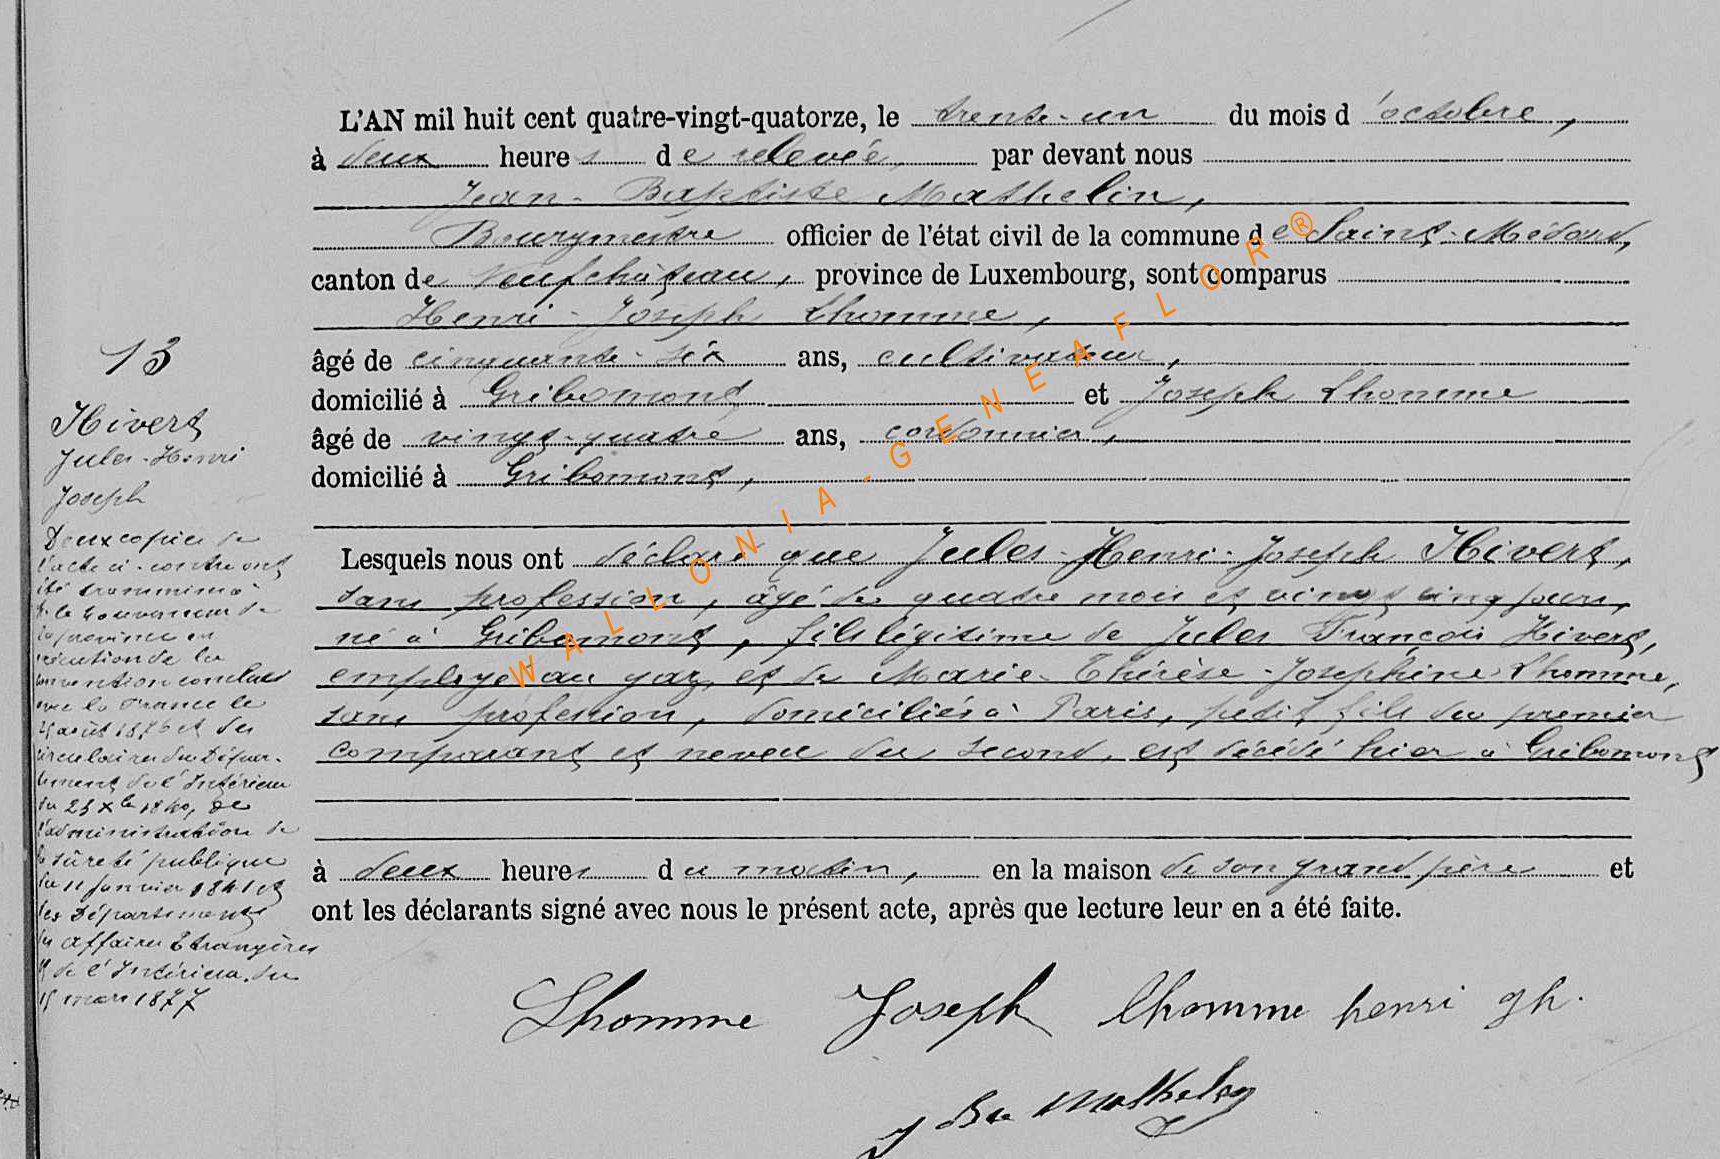 L'AN mil huit cent quatre-vingt-quatorze, le trente-un du mois d'octobre,
à deux heures de relevée, par devant nous
Jean-Baptiste Mathelin,
Bourgmestre officier de l'état civil de la commune de Saint-Médard,
canton de Neufchâteau, province de Luxembourg, sont comparus
Henri-Joseph Lhomme,
âgé de cinquante-six ans, cultivateur,
domicilié à Gribomont et Joseph Lhomme
âgé de vingt-quatre ans, cordonnier,
domicilié à Gribomont,
Lesquels nous ont déclaré que Jules-Henri-Joseph Hivert,
sans profession, âgé de quatre mois et vingt cinq jours,
né à Gribomont, fils légitime de Jules François Hivert,
employé au gaz, et de Marie-Thérèse-Joséphine Lhomme,
sans profession, domiciliés à Paris, petit fils du premier
comparant et neveu du second, est décédé hier à Gribomont
à deux heures du matin, en la maison de son grand père et
ont les déclarants signé avec nous le présent acte, après que lecture leur en a été faite.
Lhomme Joseph lhomme henri gh.
J Bte Mathelin
13
Hivert
Jules-Henri
Joseph
Deux copies de
l'acte ci-contre ont
été transmises à
Mr le Gouverneur de
la province en
exécution de la
convention conclue
avec la France le
août 1876 et des
circulaires du Dépar-
tement de l'Intérieur
du 23 Xbre 1840, de
l'administration de
la sûreté publique
du 11 janvier 1841 et
des Départements
des affaires Etrangères
et de l'Intérieur du
15 mars 1877
WALLONIA-GENEAFLOR®